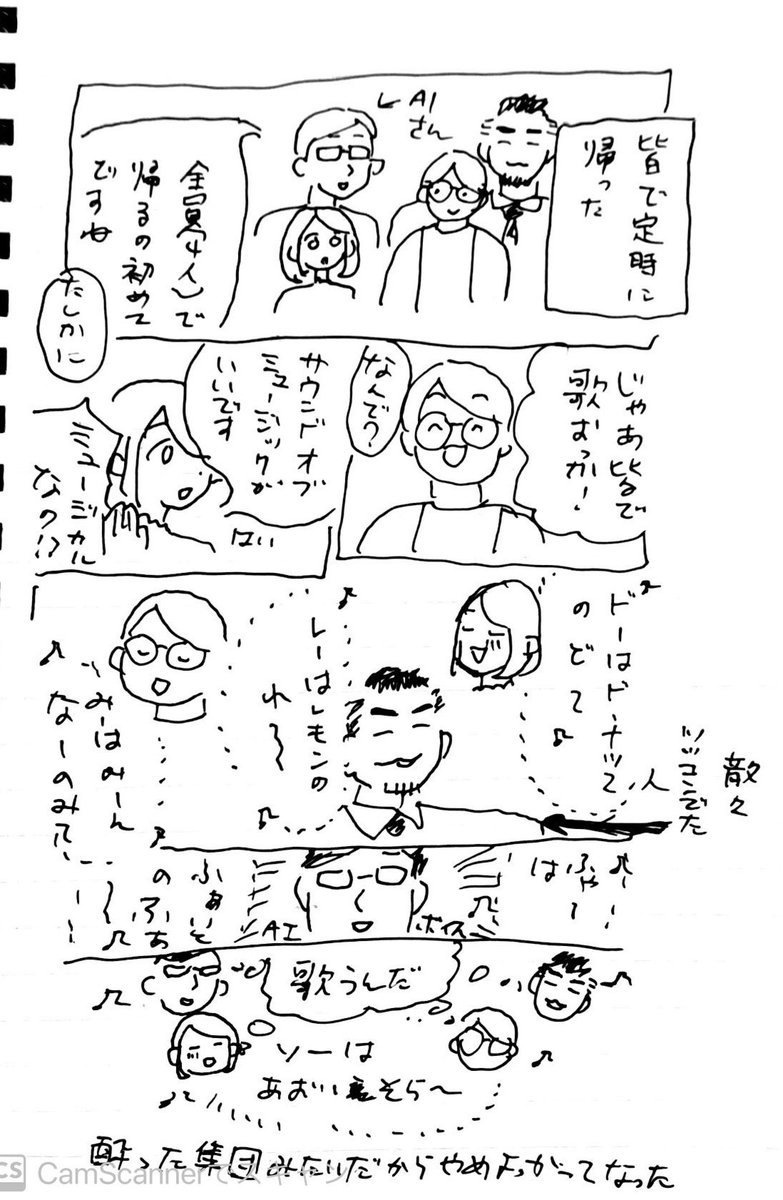 皆で定時に
帰った
AI
さん
全員(4人)で
帰るの初めて
ですね
たしかに
じゃあ皆で
歌おっか!
なんで?
サウンドオブ
ミュージックが
いいです
はい
ミュージカル
なの!?
ドーはドーナツ
のどー♪
散々
ツッコんでた
人
レーはレモンの
れ〜
みーはみーん
なーのみー
ふゃー
は
ふぁいと
のふぁ
〜
AI
ボイス
歌うんだ
ソーは
あおいそら〜
酔った集団みたいだからやめよっかってなった
CS CamScannerでスキャン